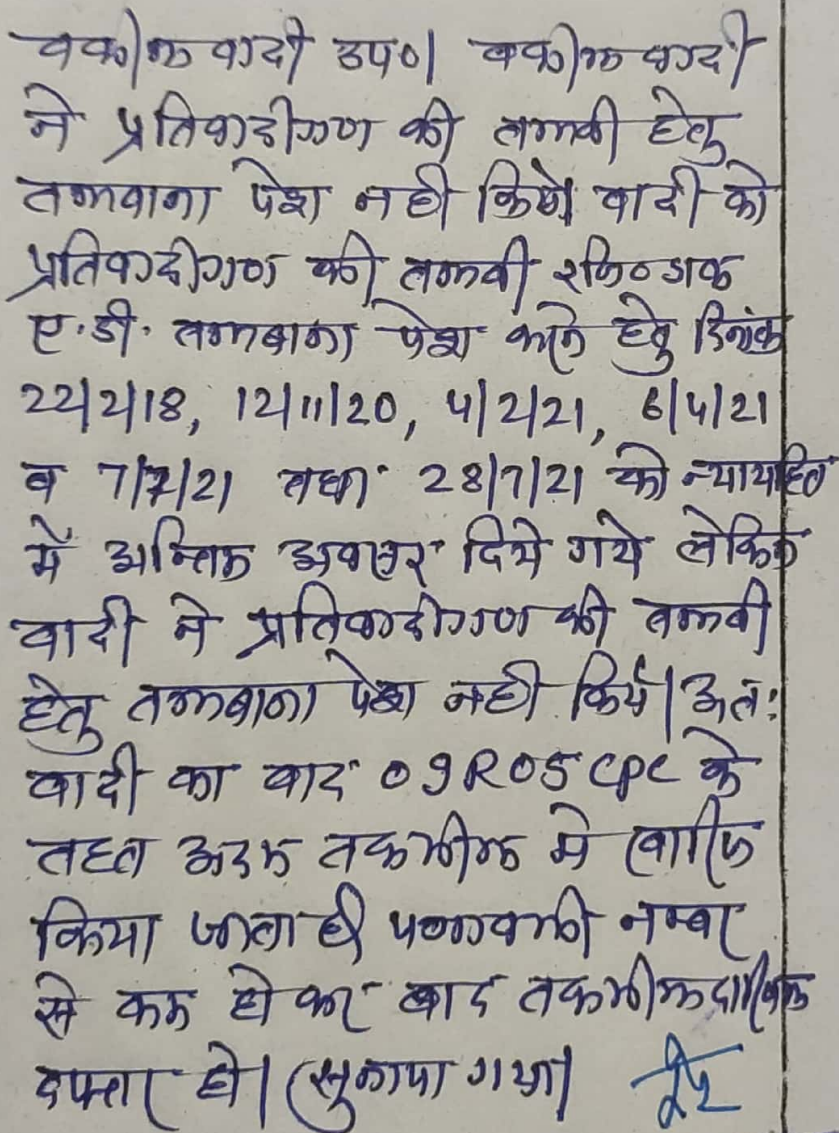 वकील वादी उप०। वकील वादी
ने प्रतिवादीगण की तलबी हेतु
तलबाना पेश नही किये। वादी को
प्रतिवादीगण की तलबी रजि० डाक
ए.डी. तलबाना पेश करने हेतु दिनांक
22/2/18, 12/11/20, 4/2/21, 6/4/21
व 7/7/21 तथा 28/7/21 को न्यायहित
में अन्तिम अवसर दिये गये लेकिन
वादी ने प्रतिवादीगण की तलबी
हेतु तलबाना पेश नही किये। अतः
वादी का वाद 09R05 CPC के
तहत अदम तकमील मे खारिज
किया जाता है। पत्रावली नम्बर
से कम हो कर बाद तकमील दाखिल
दफ्तर हो। सुनाया गया।